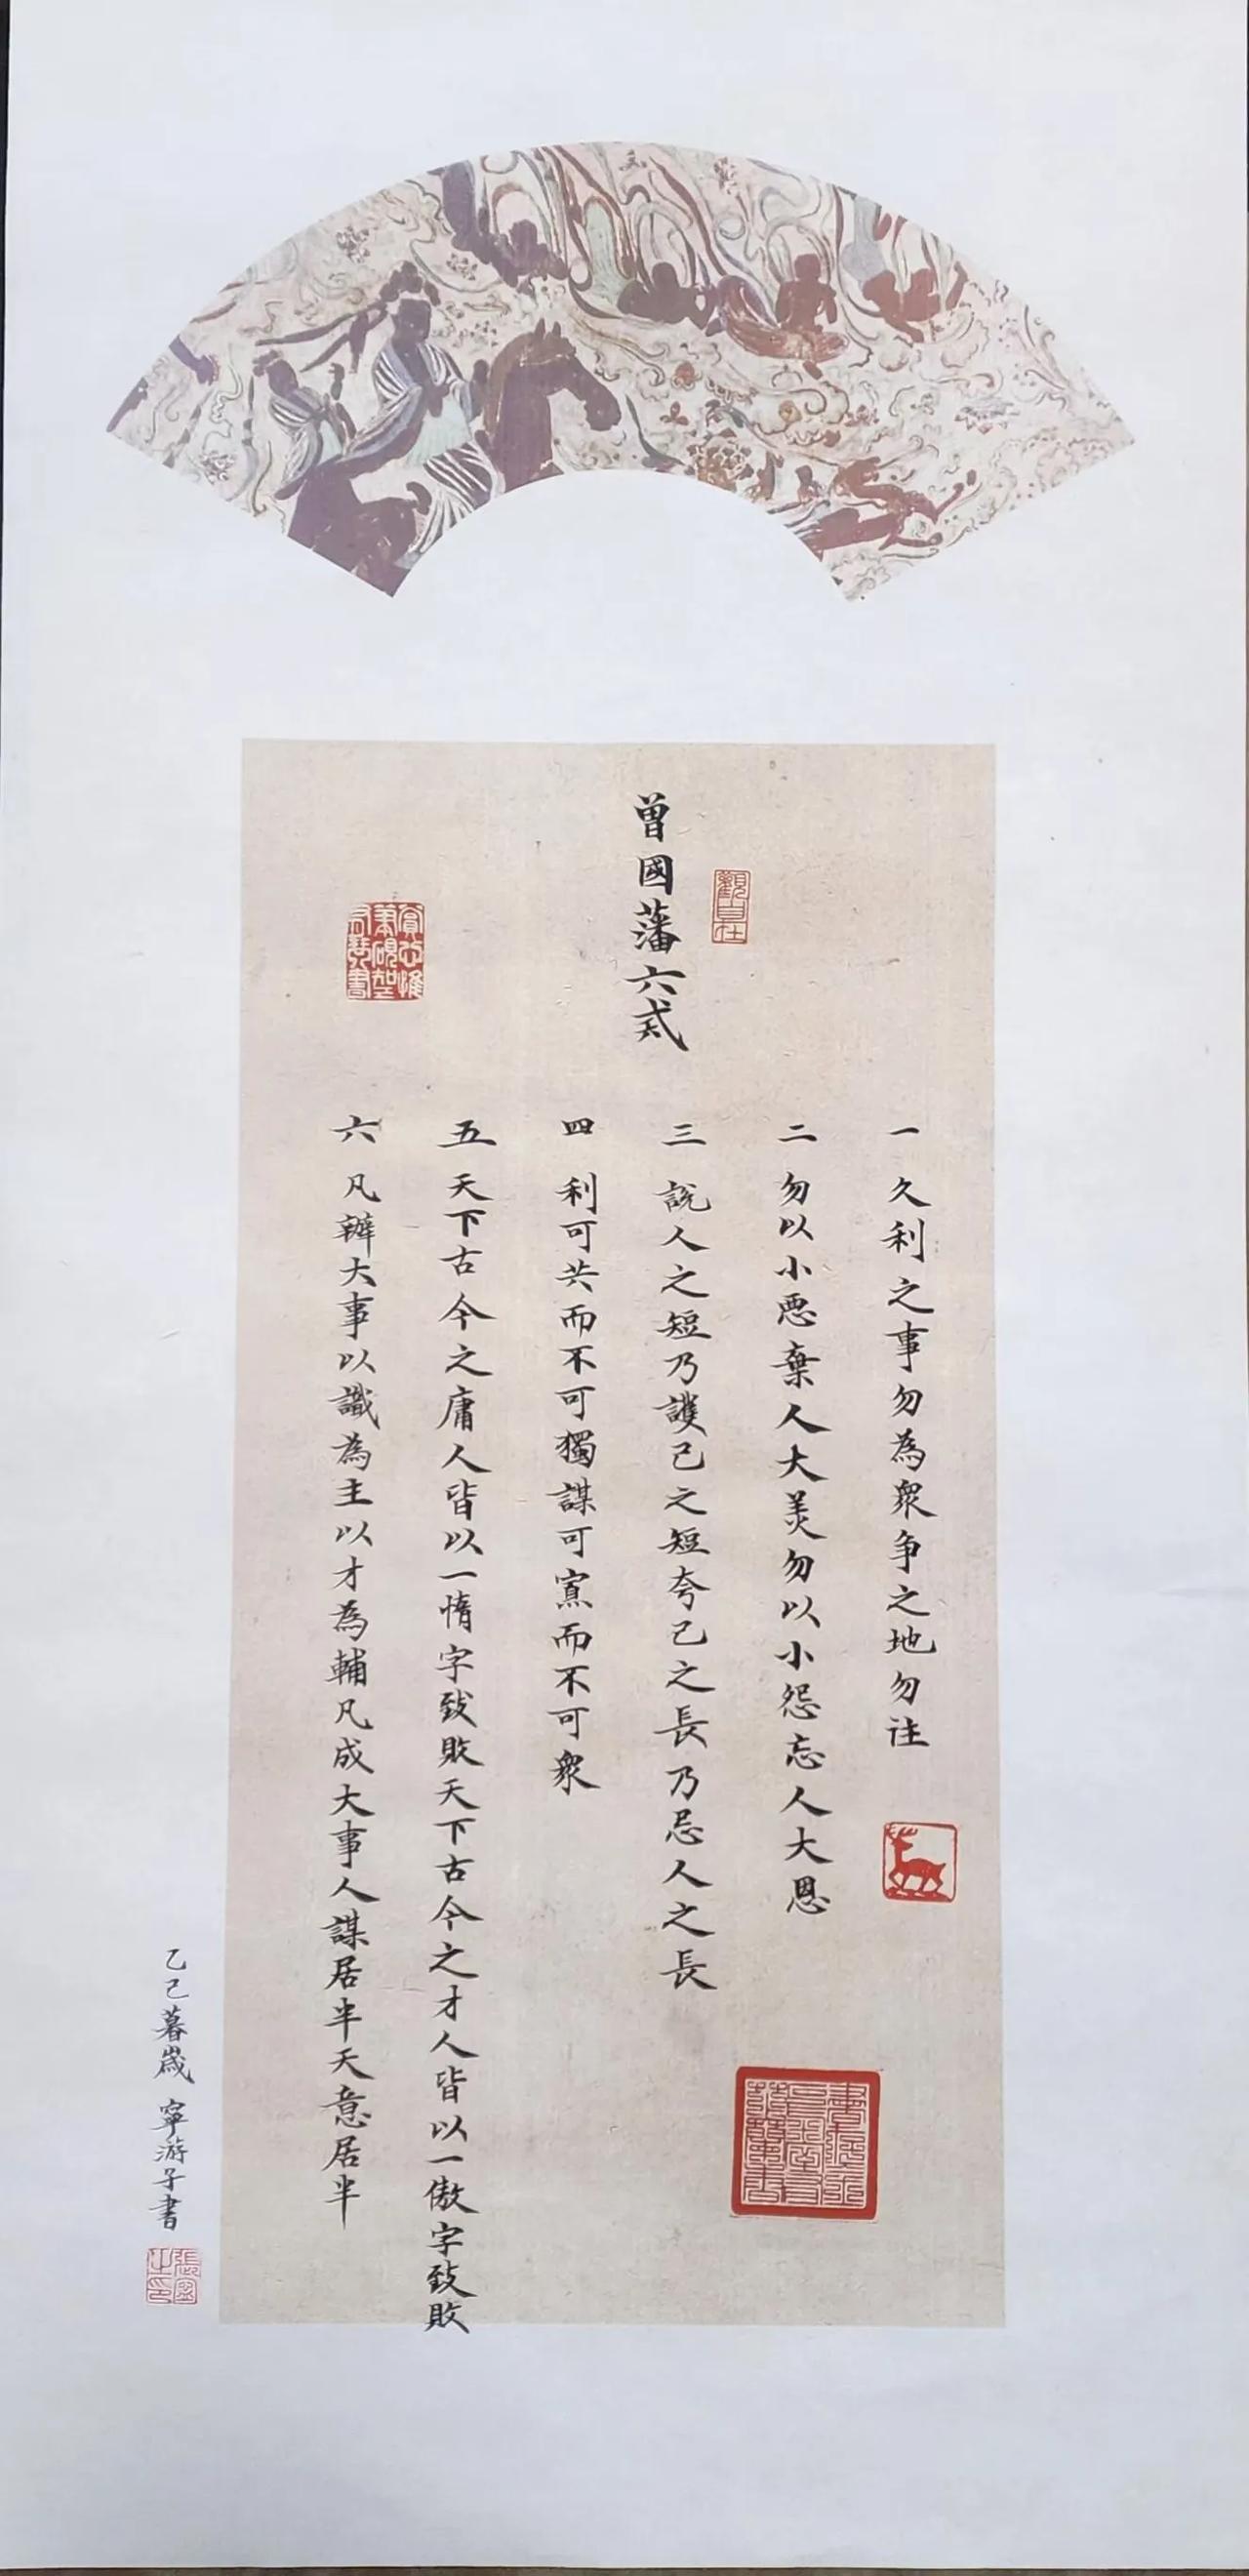 曾國藩六戒
一 久利之事勿為衆争之地勿往
二 勿以小惡棄人大美勿以小怨忘人大恩
三 說人之短乃護己之短夸己之長乃忌人之長
四 利可共而不可獨謀可寡而不可衆
五 天下古今之庸人皆以一惰字致敗天下古今之才人皆以一傲字致敗
六 凡辦大事以識為主以才為輔凡成大事人謀居半天意居半
乙巳暮歲 寧游子書
觀自在